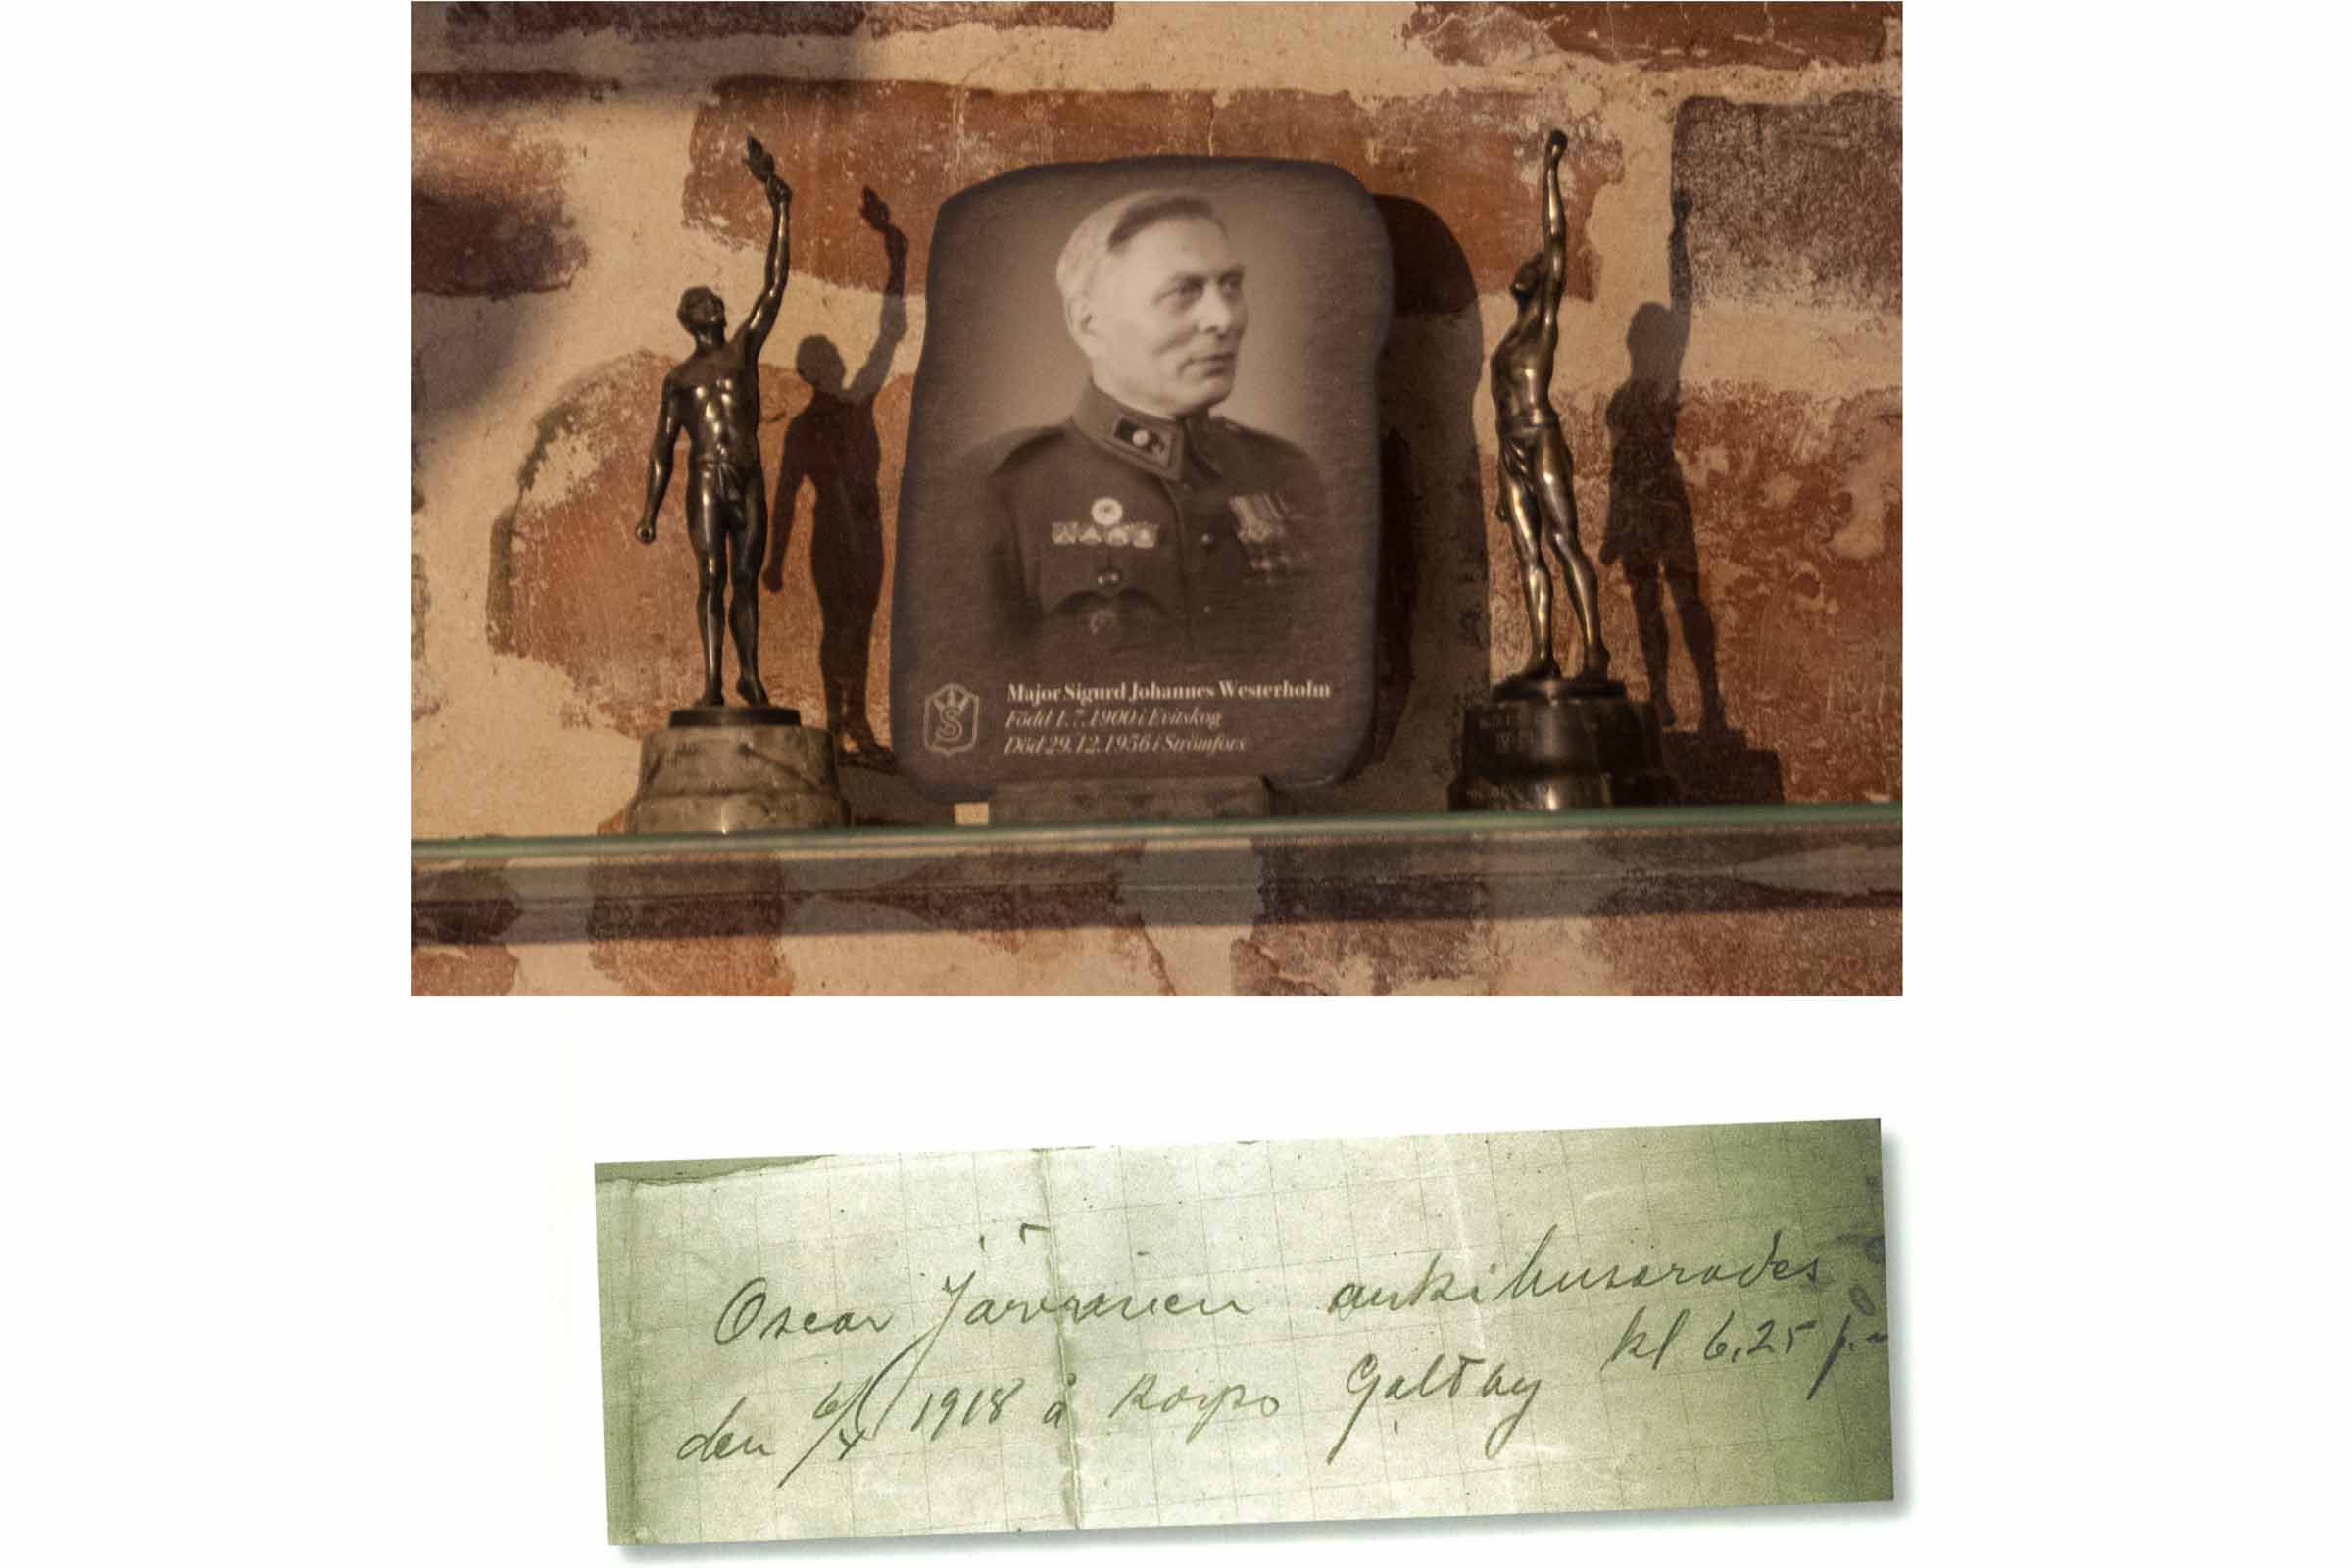 Major Sigurd Johannes Westerholm
Född 1.7.1900 i Evitskog
Död 29.12.1956 i Strömfors
S
Oscar Järvinen arkibuserades
den 6/4 1918 å Korpo Galtby kl 6,25